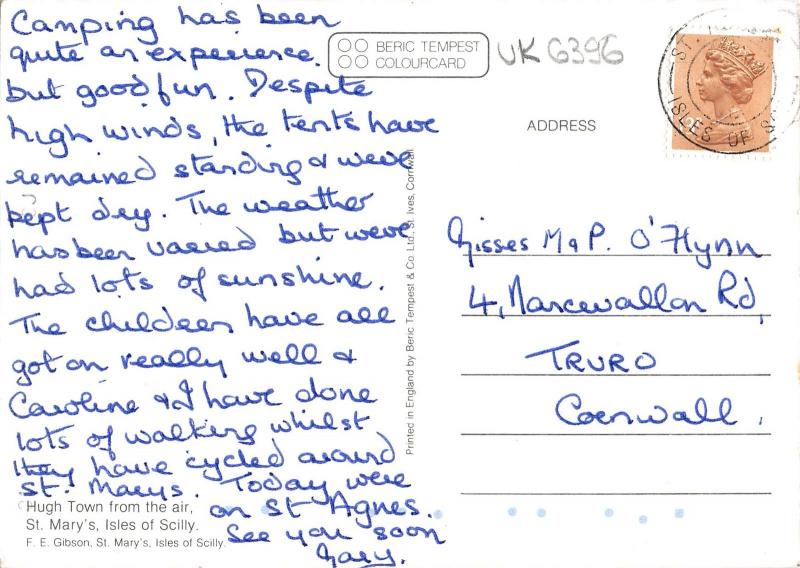 Camping has been
quite an experience
but good fun. Despite
high winds, the tents have
remained standing & weve
kept dry. The weather
has been varied but weve
had lots of sunshine.
The children have all
got on really well &
Caroline & I have done
lots of walking whilst
they have cycled around
St. Marys. Today were
on St Agnes.
See you soon
Mary.
Hugh Town from the air,
St. Mary's, Isles of Scilly.
F. E. Gibson, St. Mary's, Isles of Scilly.
BERIC TEMPEST
COLOURCARD
UK 6396
Printed in England by Beric Tempest & Co. Ltd., St. Ives, Cornwall
ADDRESS
ISLES OF
Misses M & P. O'Flynn
4, Rd,
TRURO
Cornwall.